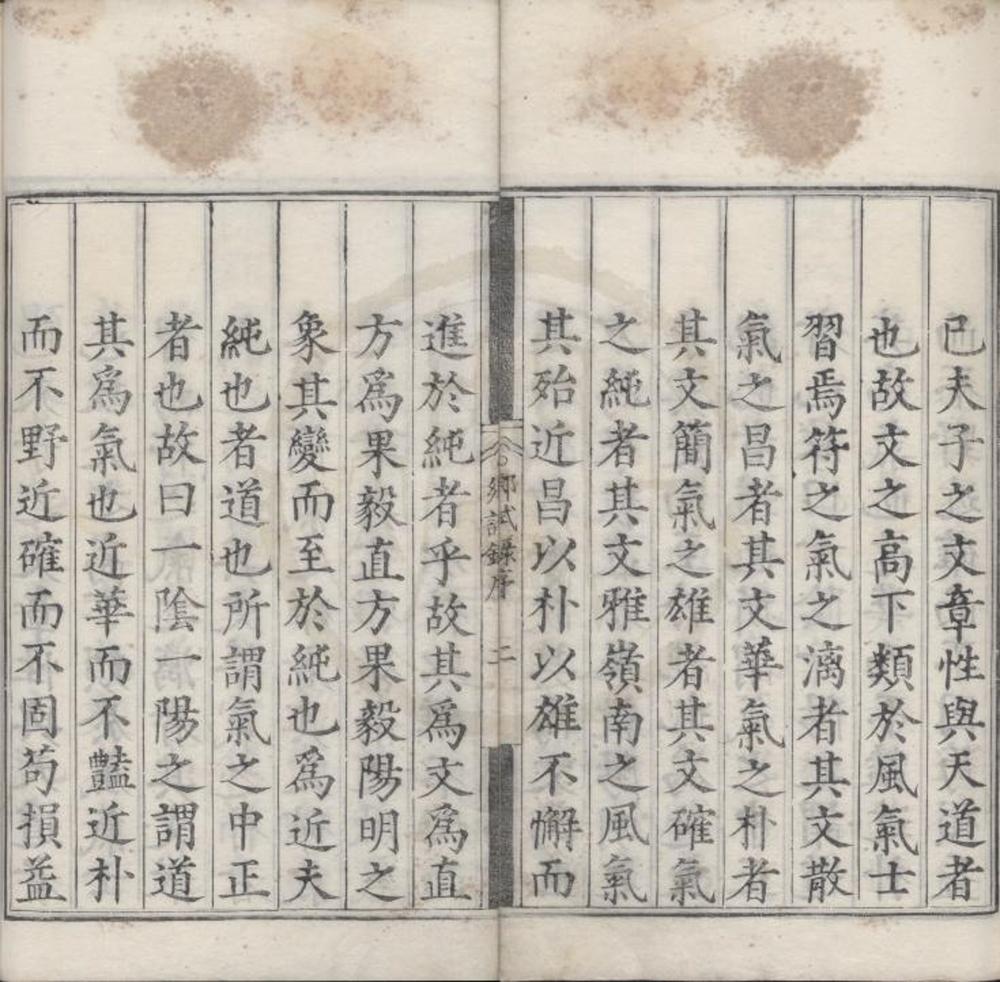 已夫子之文章性與天道者
也故文之高下類於風氣士
習焉符之氣之漓者其文散
氣之昌者其文華氣之朴者
其文簡氣之雄者其文確氣
之純者其文雅嶺南之風氣
其殆近昌以朴以雄不懈而
鄉試錄序 二
進於純者乎故其爲文爲直
方爲果毅直方果毅陽明之
象其變而至於純也爲近夫
純也者道也所謂氣之中正
者也故曰一陰一陽之謂道
其爲氣也近華而不豔近朴
而不野近確而不固苟損益